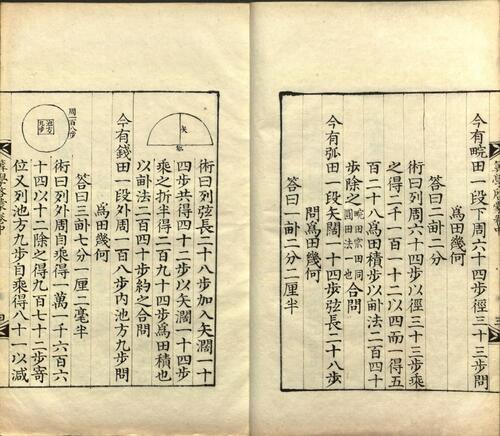 今有畹田一段下周六十四步徑三十三步問
爲田幾何
答曰二畝二分
術曰列周六十四步以徑三十三步乘
之得二千一百一十二以四而一得五
百二十八爲田積步以畝法二百四十
步除之畹田宗田同圓田法一也合問
今有弧田一段矢闊一十四步弦長二十八步
問爲田幾何
答曰一畝二分二厘半
術曰列弦長二十八步加入矢闊一十
四步共得四十二步以矢闊一十四步
乘之折半得二百九十四步爲田積也
以畝法二百四十步約之合問
矢
弦
今有錢田一段外周一百八步內池方九步問
爲田幾何
答曰三畝七分一厘二毫半
術曰列外周自乘得一萬一千六百六
十四以十二除之得九百七十二步寄
位又列池方九步自乘得八十一以減
周一百八步
池方九步